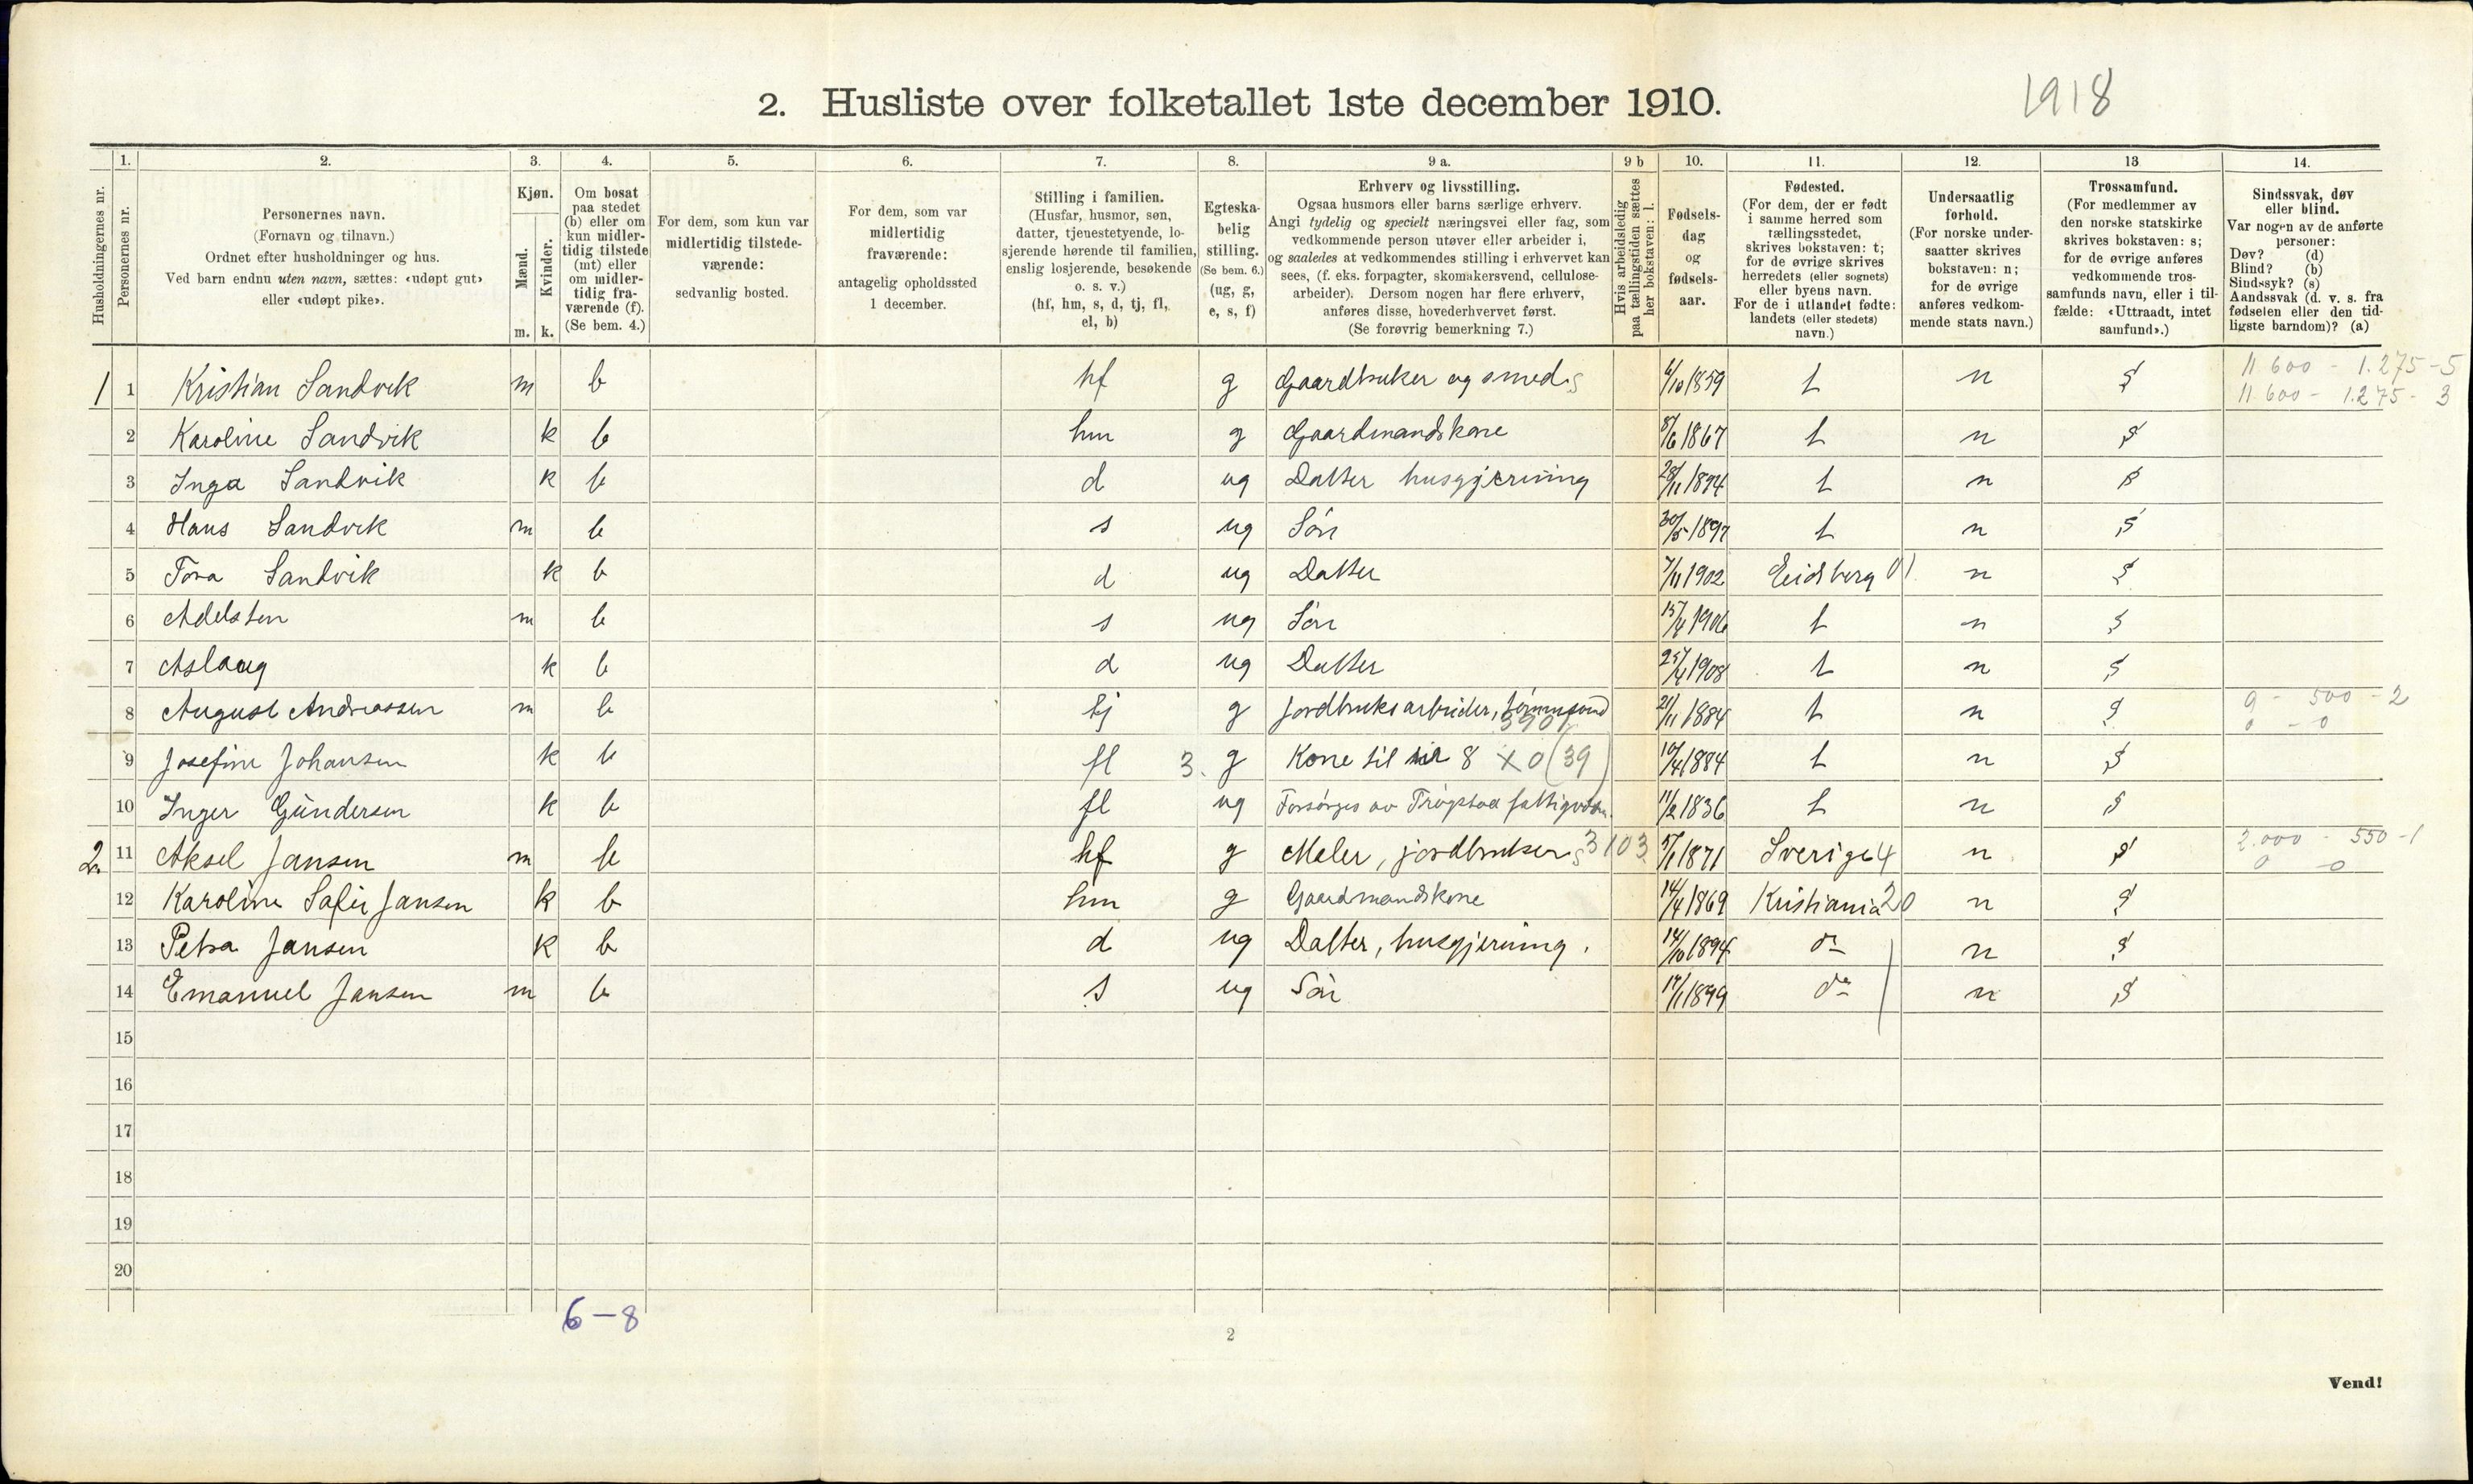 2. Husliste over folketallet 1ste december 1910.
1918
1. 2. 3. 4. 5. 6. 7. 8. 9 a. 9 b 10. 11. 12. 13 14.
Husholdningernes nr.
Personernes nr.
Personernes navn.
(Fornavn og tilnavn.)
Ordnet efter husholdninger og hus.
Ved barn endnu uten navn, sættes: «udøpt gut»
eller «udøpt pike».
Kjøn.
Mænd.
Kvinder.
m. k.
Om bosat
paa stedet
(b) eller om
kun midler-
tidig tilstede
(mt) eller
om midler-
tidig fra-
værende (f).
(Se bem. 4.)
For dem, som kun var
midlertidig tilstede-
værende:
sedvanlig bosted.
For dem, som var
midlertidig
fraværende:
antagelig opholdssted
1 december.
Stilling i familien.
(Husfar, husmor, søn,
datter, tjenestetyende, lo-
sjerende hørende til familien,
enslig losjerende, besøkende
o. s. v.)
(hf, hm, s, d, tj, fl,
el, b)
Egteska-
belig
stilling.
(Se bem. 6.)
(ug, g,
e, s, f)
Erhverv og livsstilling.
Ogsaa husmors eller barns særlige erhverv.
Angi tydelig og specielt næringsvei eller fag, som
vedkommende person utøver eller arbeider i,
og saaledes at vedkommendes stilling i erhvervet kan
sees, (f. eks. forpagter, skomakersvend, cellulose-
arbeider). Dersom nogen har flere erhverv,
anføres disse, hovederhvervet først.
(Se forøvrig bemerkning 7.)
Hvis arbeidsledig
paa tællingstiden sættes
her bokstaven: l.
Fødsels-
dag
og
fødsels-
aar.
Fødested.
(For dem, der er født
i samme herred som
tællingsstedet,
skrives bokstaven: t;
for de øvrige skrives
herredets (eller sognets)
eller byens navn.
For de i utlandet fødte:
landets (eller stedets)
navn.)
Undersaatlig
forhold.
(For norske under-
saatter skrives
bokstaven: n;
for de øvrige
anføres vedkom-
mende stats navn.)
Trossamfund.
(For medlemmer av
den norske statskirke
skrives bokstaven: s;
for de øvrige anføres
vedkommende tros-
samfunds navn, eller i til-
fælde: «Uttraadt, intet
samfund».)
Sindssvak, døv
eller blind.
Var nogen av de anførte
personer:
Døv? (d)
Blind? (b)
Sindssyk? (s)
Aandssvak (d. v. s. fra
fødselen eller den tid-
ligste barndom)? (a)
1 1 Kristian Sandvik m b hf g Gaardbruker og smed s 6/10 1859 t n s 11 600 - 1.275 - 5
11.600 - 1.275 - 3
2 Karoline Sandvik k b hm g Gaardmandskone 8/6 1867 t n s
3 Inga Sandvik k b d ug Datter husgjerning 28/11 1894 t n s
4 Hans Sandvik m b s ug Søn 30/5 1897 t n s
5 Tora Sandvik k b d ug Datter 7/11 1902 Eidsberg 01 n s
6 Adelsten m b s ug Søn 15/4 1906 t n s
7 Aslaug k b d ug Datter 25/4 1908 t n s
8 August Andreassen m b tj g Jordbruksarbeider, 21/11 1884 t n s 9 - 500 - 2
0 - 0
9 Josefine Johansen k b fl 3. g Kone til nr 8 x 0 (39) 10/4 1884 t n s
10 Inger Gundersen k b fl ug Forsørges av Trøgstad 11/2 1836 t n s
2. 11 Aksel Jansen m b hf g Maler, jordbruker s 3103 5/1 1871 Sverige 4 n s 2.000 - 550 - 1
0 - 0
12 Karoline Sofie Jansen k b hm g Gaardmandskone 14/4 1869 Kristiania 20 n s
13 Petra Jansen k b d ug Datter, husgjerning. 14/10 1894 do n s
14 Emanuel Jansen m b s ug Søn 17/1 1899 do n s
15
16
17
18
19
20
6 - 8
2
Vend!